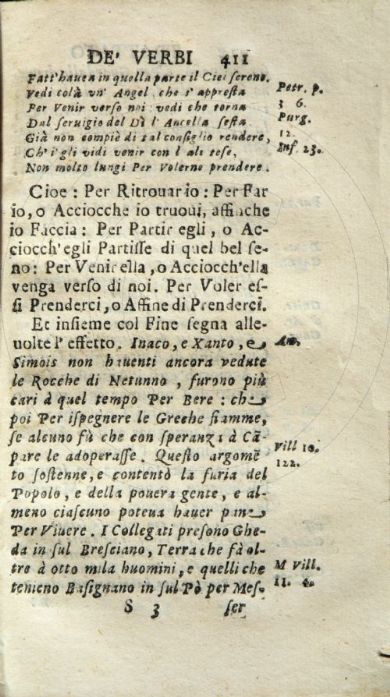 DE' VERBI 411
Fatt'havea in quella parte il Ciel sereno.
Vedi colà vn' Angel che s'appresta
Per Venir verso noi: vedi che torna
Dal seruigio del Dì l'Ancella sesta
Già non compiè di tal consiglio rendere,
Ch'i gli vidi venir con l'ali tese,
Non molto lungi Per Volerne prendere.
Petr. p.
3 6.
Purg.
12.
Inf. 23.
Cioe: Per Ritrouario: Per Far
io, o Acciocche io truoui, affinche
io Faccia: Per Partir egli, o Ac-
ciocch'egli Partisse di quel bel se-
no: Per Venir ella, o Acciocch'ella
venga verso di noi. Per Voler es-
si Prenderci, o Affine di Prenderci.
Et insieme col Fine segna alle-
uolte l'effetto. Inaco, e Xanto, e
Simois non hauenti ancora vedute
le Rocche di Netunno, furono più
cari à quel tempo Per Bere: che
poi Per ispegnere le Greche fiamme,
se alcuno fù che con speranza à Cã-
pare le adoperasse. Questo argomẽ
to sostenne, e contentò la furia del
Popolo, e della pouera gente, e al-
meno ciascuno poteua hauer pane
Per Viuere. I Collegati presono Ghe-
da in sul Bresciano, Terra che fà ol-
tre à otto mila huomini, e quelli che
tenieno Basignano in sul Pò per Mes-
Am.
Vill 10.
122.
M Vill.
11. 4.
S 3 ser